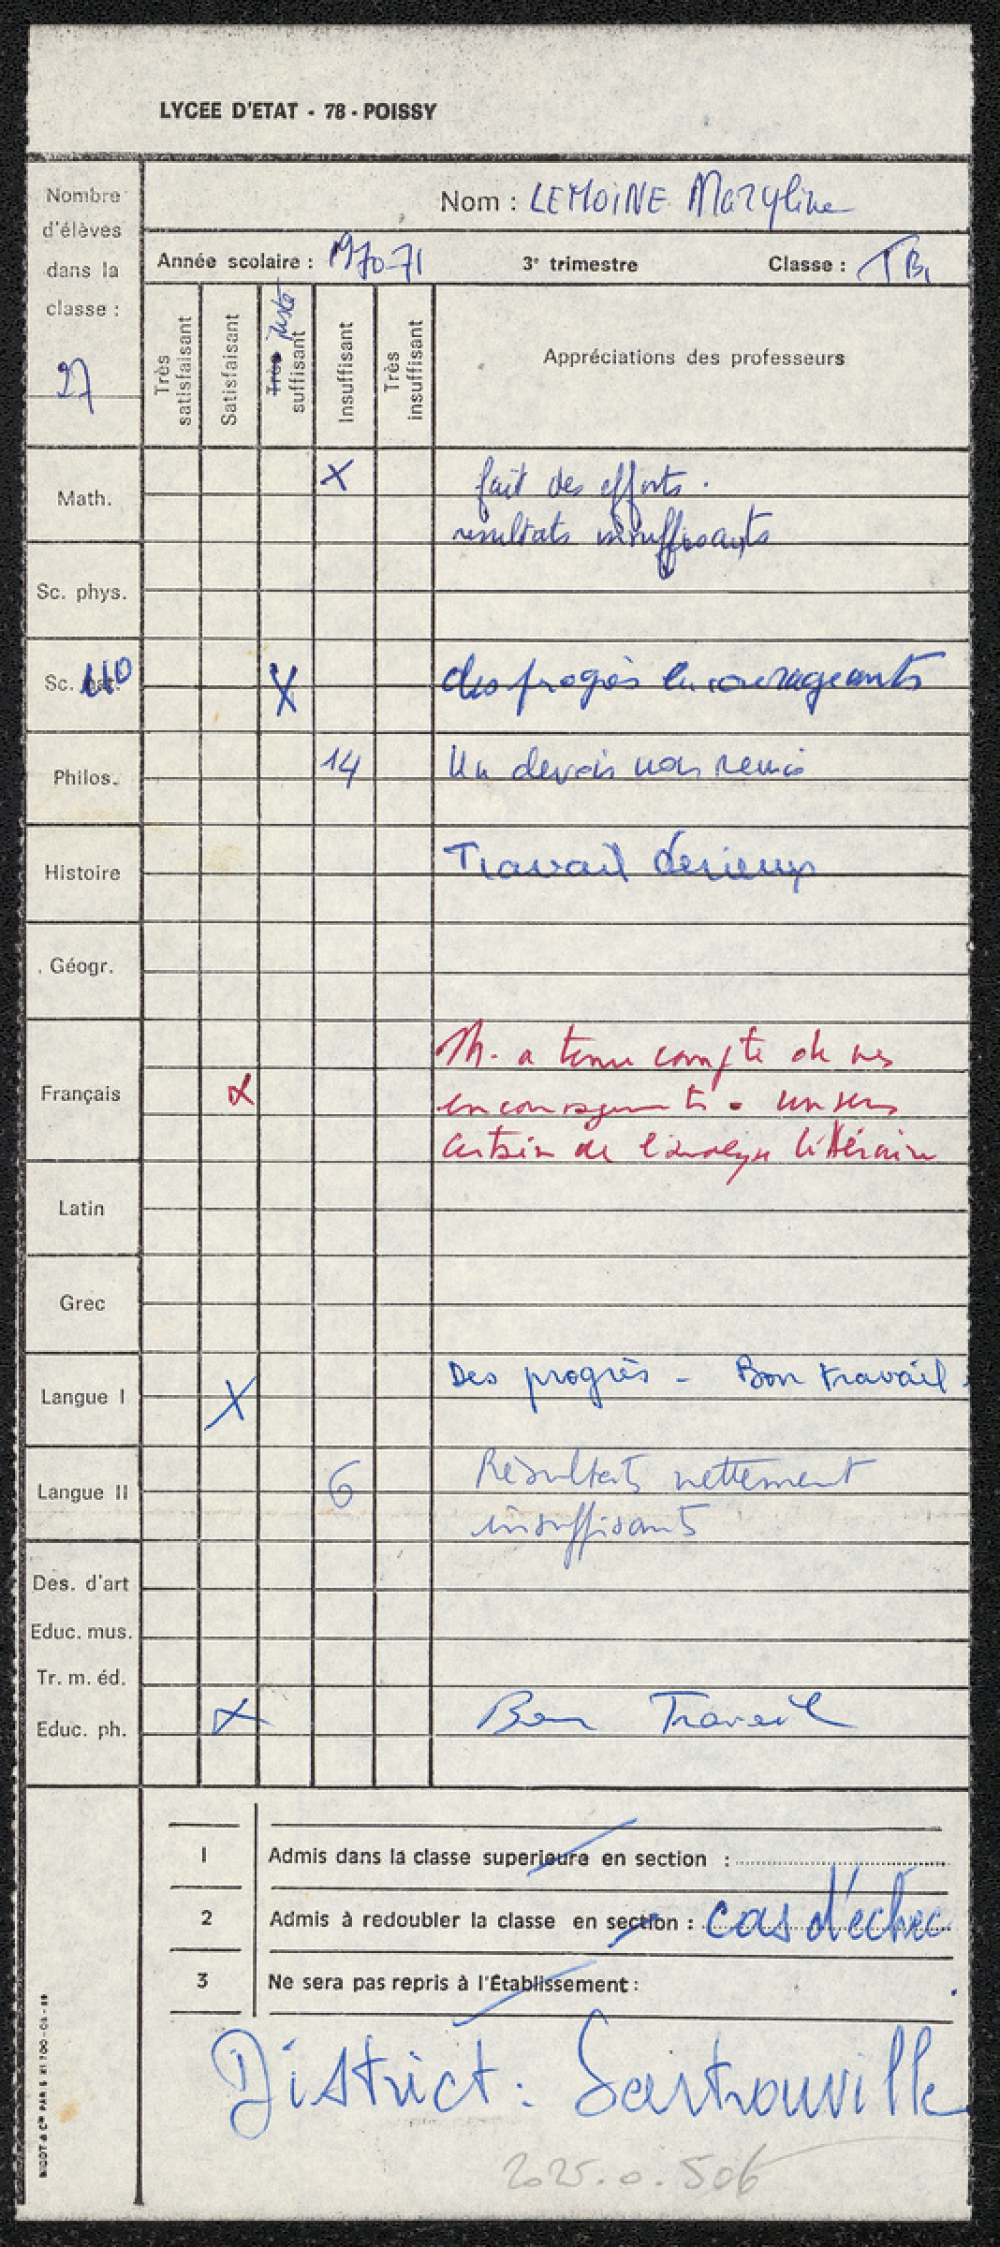 LYCEE D'ETAT - 78 - POISSY
Nombre
d'élèves
dans la
classe :
27
Nom : LEMOINE Maryline
Année scolaire : 1970-71 3e trimestre Classe : TB1
Très satisfaisant
Satisfaisant
Très juste suffisant
Insuffisant
Très insuffisant
Appréciations des professeurs
Math. X fait des efforts.
résultats insuffisants
Sc. phys.
Sc. nat. X des progrès encourageants
Philos. 14 Un devoir non remis
Histoire Travail sérieux
Géogr.
Français x M. a tenu compte de mes
encouragements. un sens
certain de l'analyse littéraire
Latin
Grec
Langue I X Des progrès - Bon travail.
Langue II 6 Résultats nettement
insuffisants
Des. d'art
Educ. mus.
Tr. m. éd.
Educ. ph. X Bon Travail
1 Admis dans la classe superieure en section :
2 Admis à redoubler la classe en section : cas d'échec
3 Ne sera pas repris à l'Établissement :
District : Sartrouville
2025.0.506